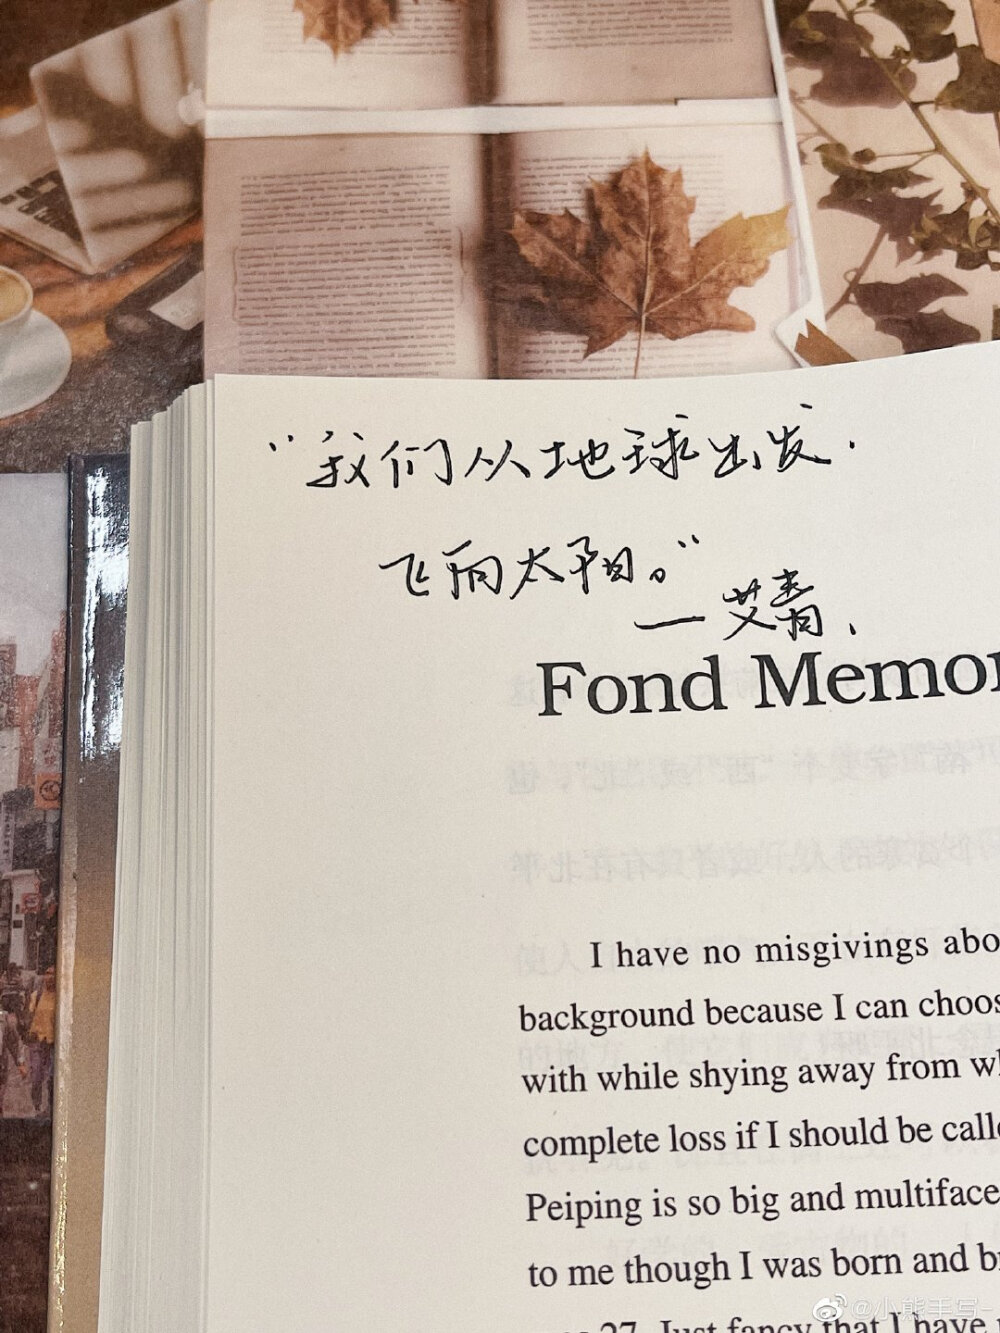 “我们从地球出发.
飞向太阳。”
—艾青.
Fond Memor
I have no misgivings abo
background because I can choos
with while shying away from wh
complete loss if I should be calle
Peiping is so big and multiface
to me though I was born and br
27. Just fancy that I have
@小熊手写-